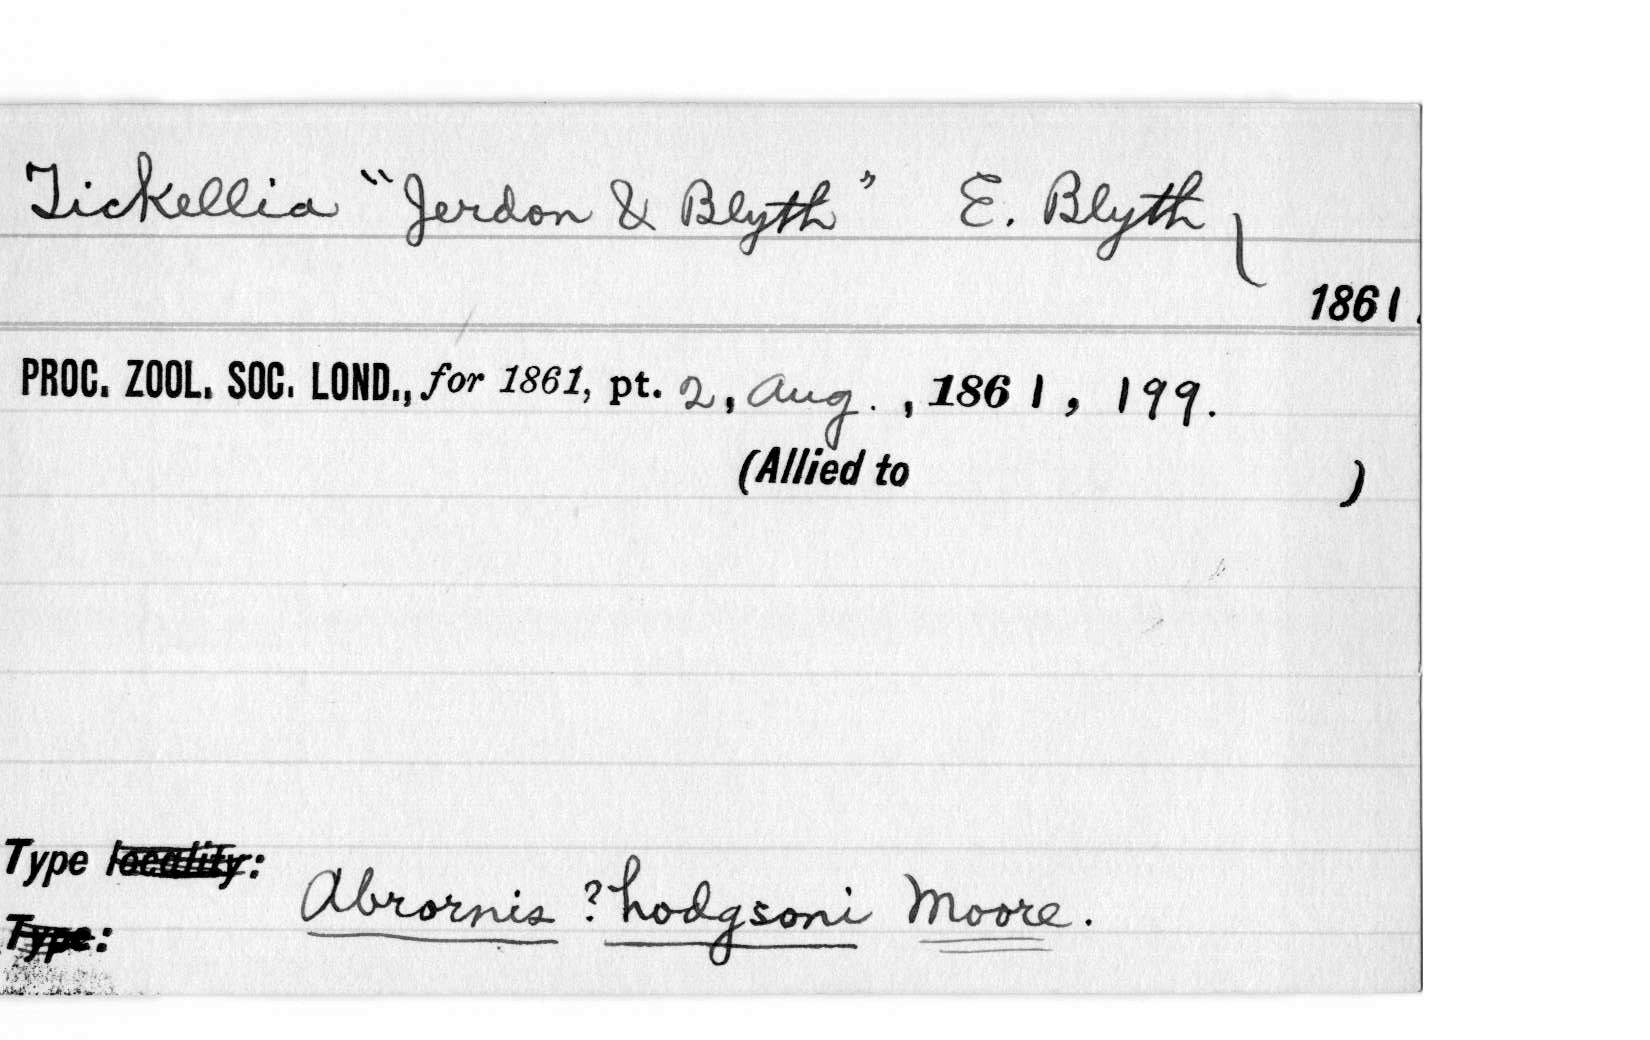 Tickellia “Jerdon & Blyth” E. Blyth
1861.
PROC. ZOOL. SOC. LOND., for 1861, pt. 2, Aug. , 1861, 199.
(Allied to )
Type locality:
Abrornis ?hodgsoni Moore.
Type: